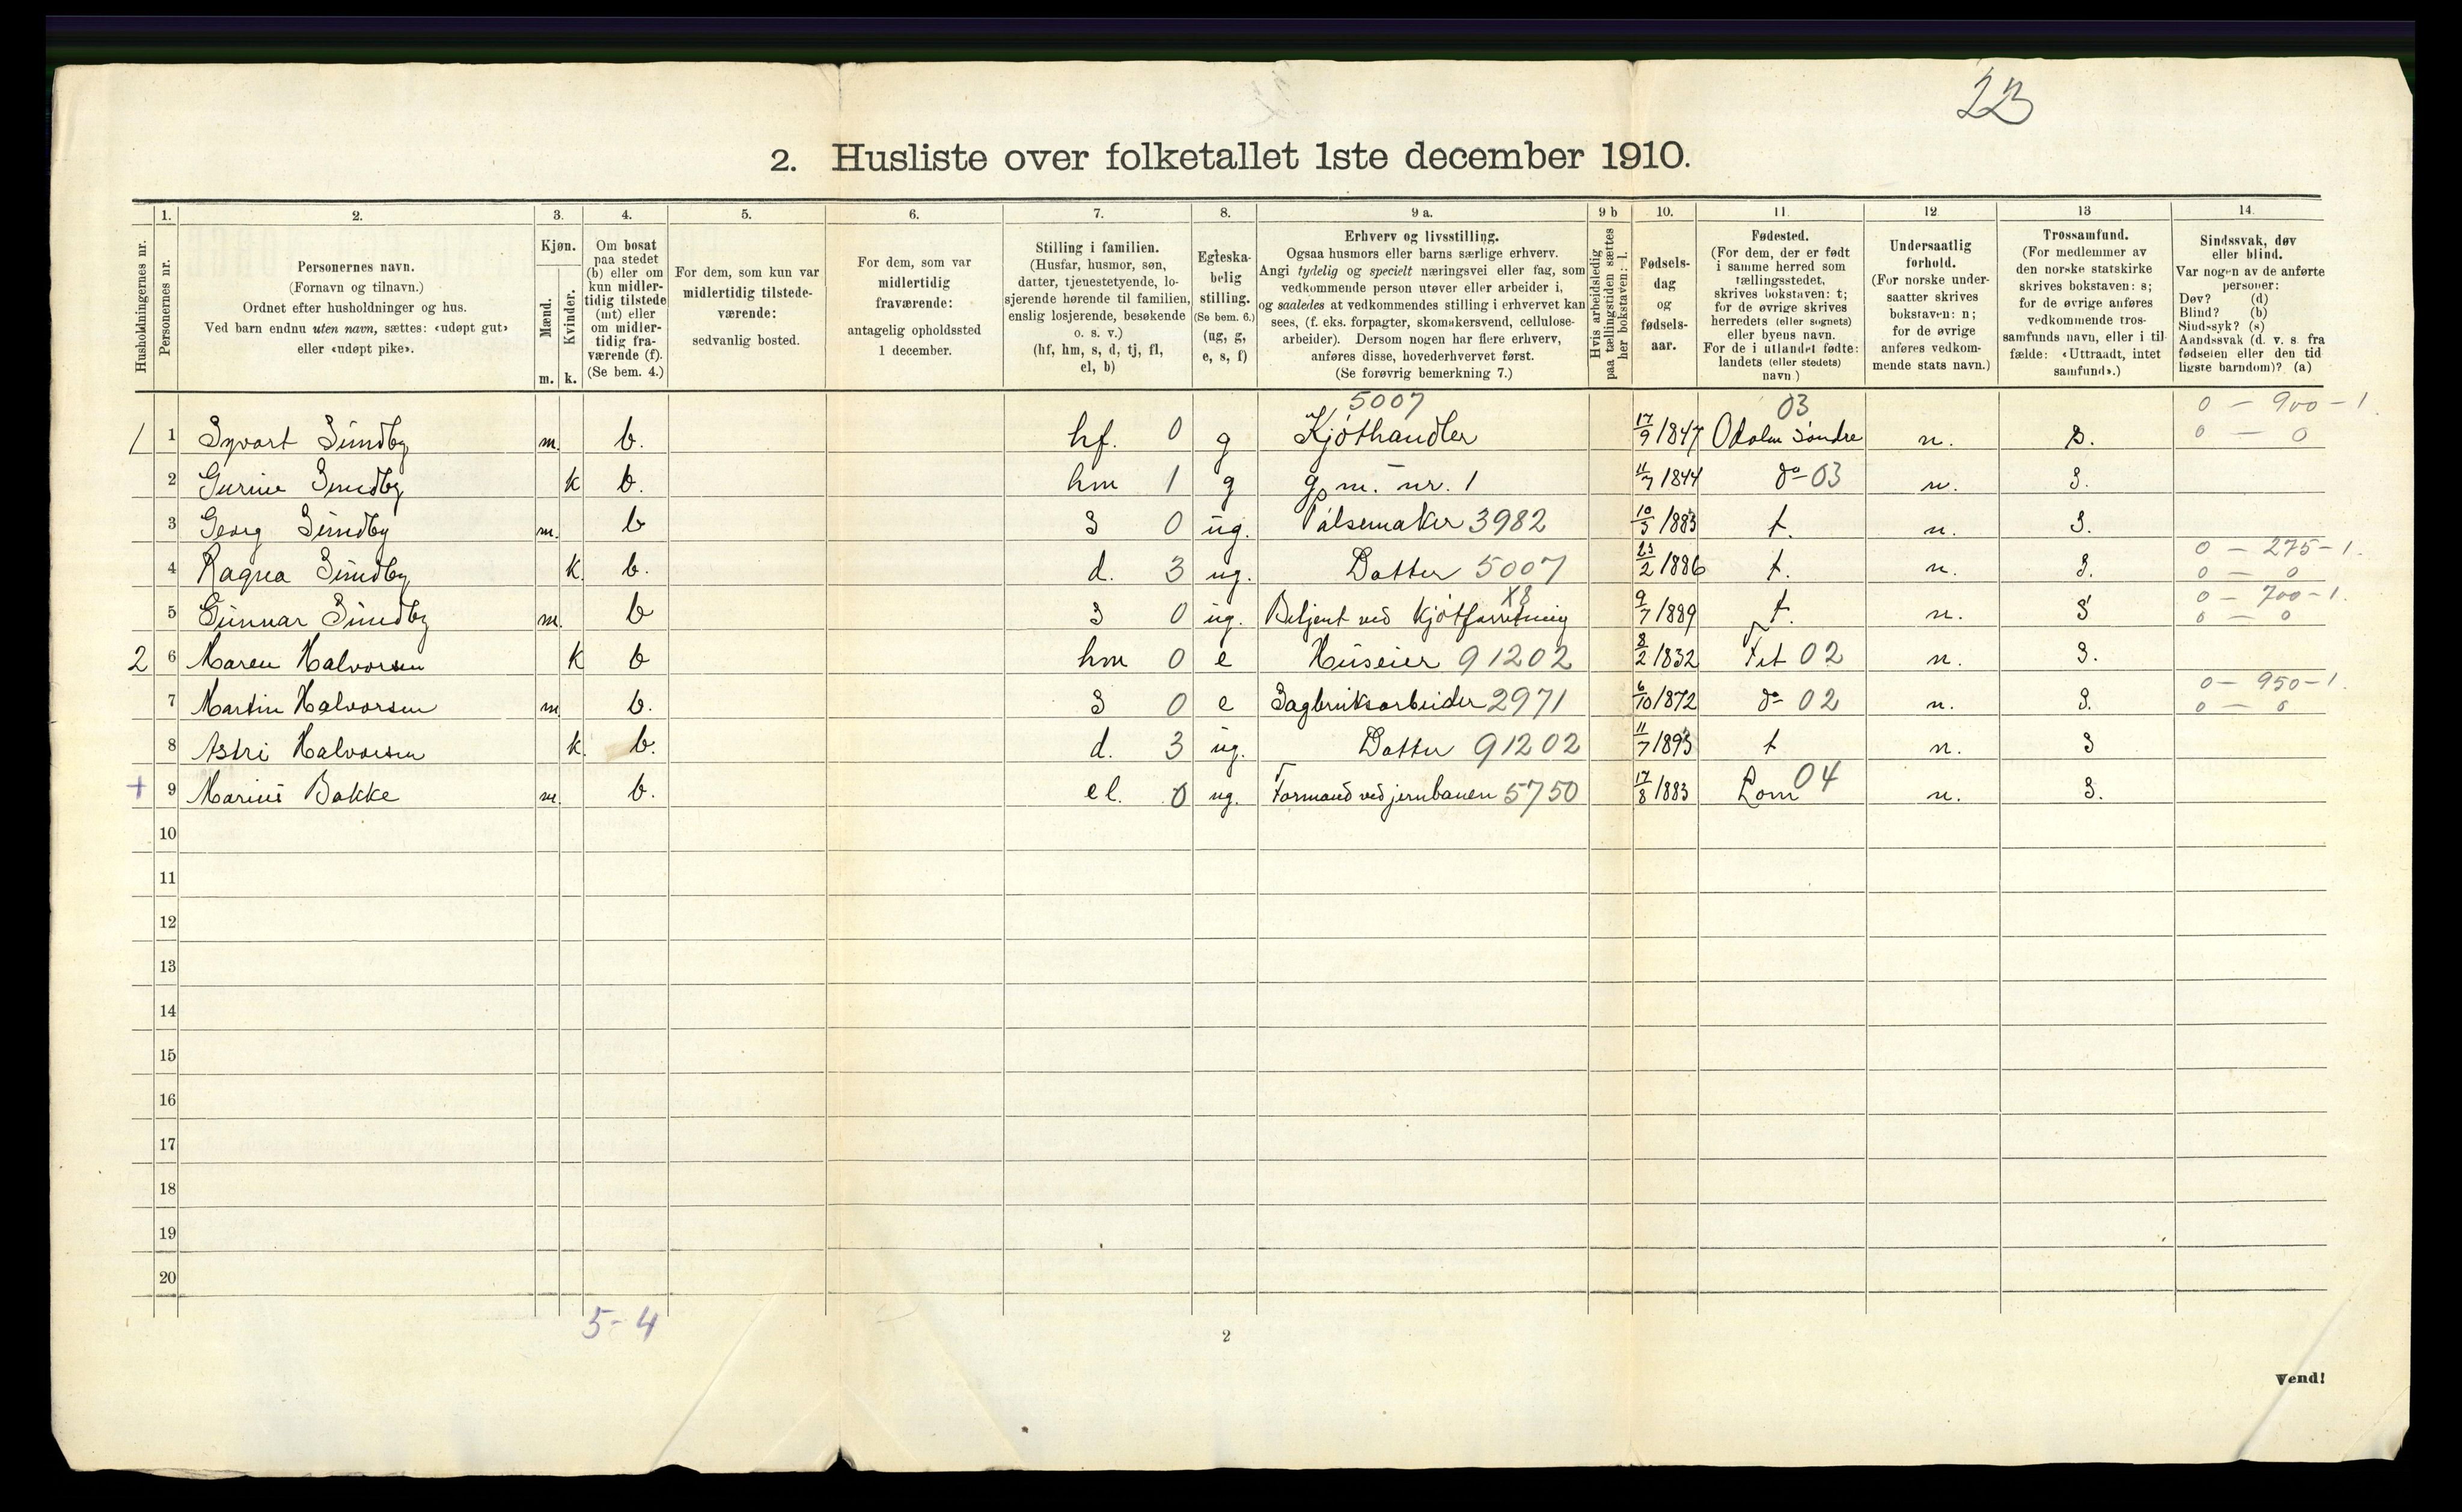 22
2. Husliste over folketallet 1ste december 1910.
Husholdningernes nr.
1.
Personernes nr.
2.
Personernes navn.
(Fornavn og tilnavn.)
Ordnet efter husholdninger og hus.
Ved barn endnu uten navn, sættes: «udøpt gut»
eller «udøpt pike».
3.
Kjøn.
Mænd.
Kvinder.
m. k.
4.
Om bosat
paa stedet
(b) eller om
kun midler-
tidig tilstede
(mt) eller
om midler-
tidig fra-
værende (f).
(Se bem. 4.)
5.
For dem, som kun var
midlertidig tilstede-
værende:
sedvanlig bosted.
6.
For dem, som var
midlertidig
fraværende:
antagelig opholdssted
1 december.
7.
Stilling i familien.
(Husfar, husmor, søn,
datter, tjenestetyende, lo-
sjerende hørende til familien,
enslig losjerende, besøkende
o. s. v.)
(hf, hm, s, d, tj, fl,
el, b)
8.
Egteska-
belig
stilling.
(Se bem. 6.)
(ug, g,
e, s, f)
9 a.
Erhverv og livsstilling.
Ogsaa husmors eller barns særlige erhverv.
Angi tydelig og specielt næringsvei eller fag, som
vedkommende person utøver eller arbeider i,
og saaledes at vedkommendes stilling i erhvervet kan
sees, (f. eks. forpagter, skomakersvend, cellulose-
arbeider). Dersom nogen har flere erhverv,
anføres disse, hovederhvervet først.
(Se forøvrig bemerkning 7.)
9 b
Hvis arbeidsledig
paa tællingstiden sættes
her bokstaven: l.
10.
Fødsels-
dag
og
fødsels-
aar.
11.
Fødested.
(For dem, der er født
i samme herred som
tællingsstedet,
skrives bokstaven: t;
for de øvrige skrives
herredets (eller sognets)
eller byens navn.
For de i utlandet fødte:
landets (eller stedets)
navn.)
12.
Undersaatlig
forhold.
(For norske under-
saatter skrives
bokstaven: n;
for de øvrige
anføres vedkom-
mende stats navn.)
13
Trossamfund.
(For medlemmer av
den norske statskirke
skrives bokstaven: s;
for de øvrige anføres
vedkommende tros-
samfunds navn, eller i til-
fælde: «Uttraadt, intet
samfund».)
14.
Sindssvak, døv
eller blind.
Var nogen av de anførte
personer:
Døv? (d)
Blind? (b)
Sindssyk? (s)
Aandssvak (d. v. s. fra
fødselen eller den tid
ligste barndom)? (a)
5007 03 0 — 900 — 1.
1 1 Syvart Sundby m. b. hf. 0 g Kjøthandler 17/9 1847 Odalen Søndre n. S. 0 — 0
2 Gurine Sundby k b. hm 1 g g. m. nr. 1 11/7 1844 do 03 n. S.
3 Georg Sundby m. b S 0 ug. Pølsemaker 3982 10/3 1883 t. n. S.
0 — 275 — 1.
4 Ragna Sundby k. b. d. 3 ug. Datter 5007 23/2 1886 t. n. S. 0 — 0
X8 0 — 700 — 1.
5 Gunnar Sundby m. b S 0 ug. Betjent ved Kjøtforretning 9/7 1889 t. n. S 0 — 0
2 6 Maren Halvorsen k b hm 0 e Huseier 91202 8/2 1832 Fet 02 n. S.
0 — 950 — 1.
7 Martin Halvorsen m. b. S 0 e Sagbruksarbeider 2971 6/10 1872 do 02 n. S. 0 — 0
8 Astri Halvorsen k. b. d. 3 ug. Datter 91202 11/7 1893 t n. S
+ 9 Marius Bakke m. b. el. 0 ug. Formand ved jernbanen 5750 17/8 1883 Lom 04 n. S.
10
11
12
13
14
15
16
17
18
19
20
5 - 4
2
Vend!